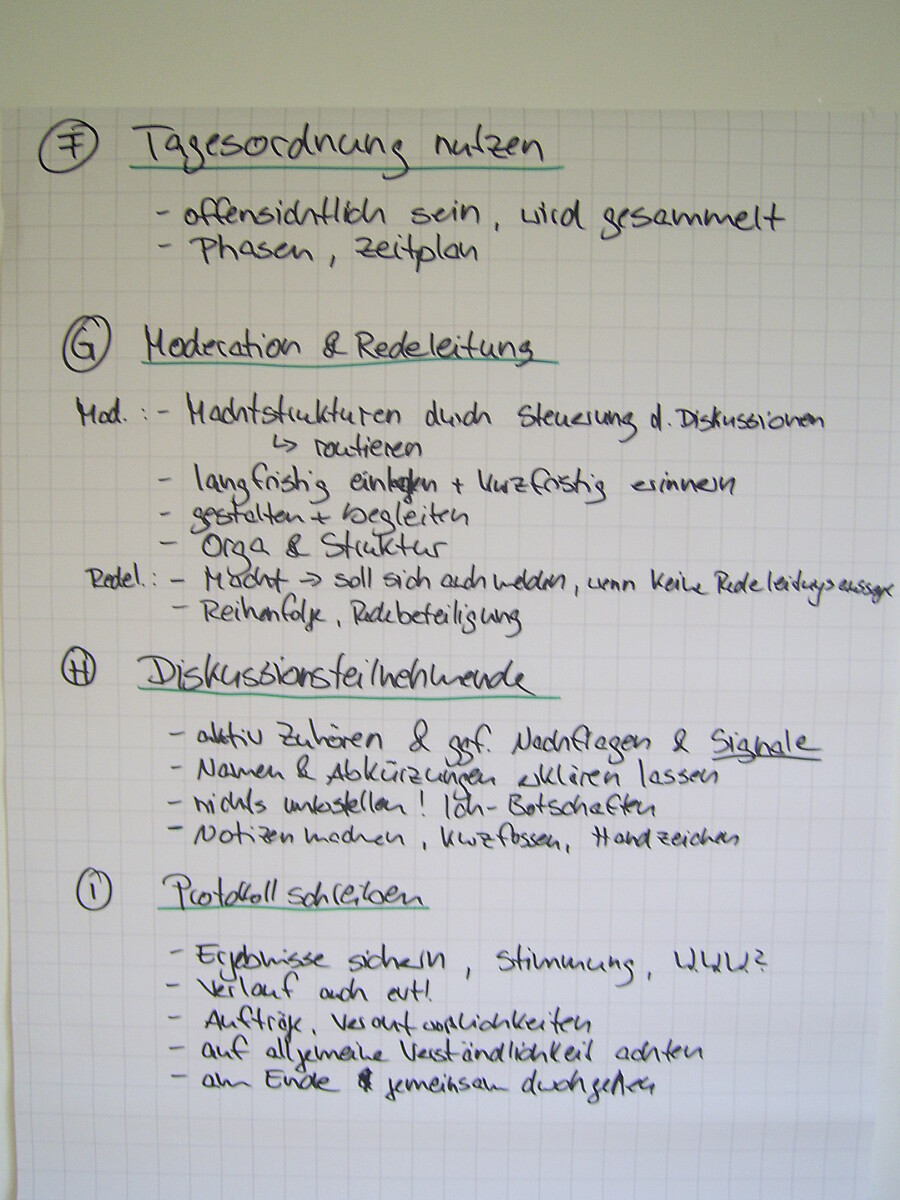 F Tagesordnung nutzen
- offensichtlich sein, wird gesammelt
- Phasen, Zeitplan
G Moderation & Redeleitung
Mod.: - Machtstrukturen durch Steuerung d. Diskussionen
↳ routieren
- langfristig einladen + kurzfristig erinnern
- gestalten + begleiten
- Orga & Struktur
Redel.: - Macht → soll sich auch melden, wenn keine
- Reihenfolge, Redebeteiligung
H Diskussionsteilnehmende
- aktiv Zuhören & ggf. Nachfragen & Signale
- Namen & Abkürzungen erklären lassen
- nichts unterstellen! Ich-Botschaften
- Notizen machen, kurzfassen, Handzeichen
I Protokoll schreiben
- Ergebnisse sichern, Stimmung, WWW?
- Verlauf auch evtl.
- Aufträge, Verantwortlichkeiten
- auf allgemeine Verständlichkeit achten
- am Ende gemeinsam durchgehen